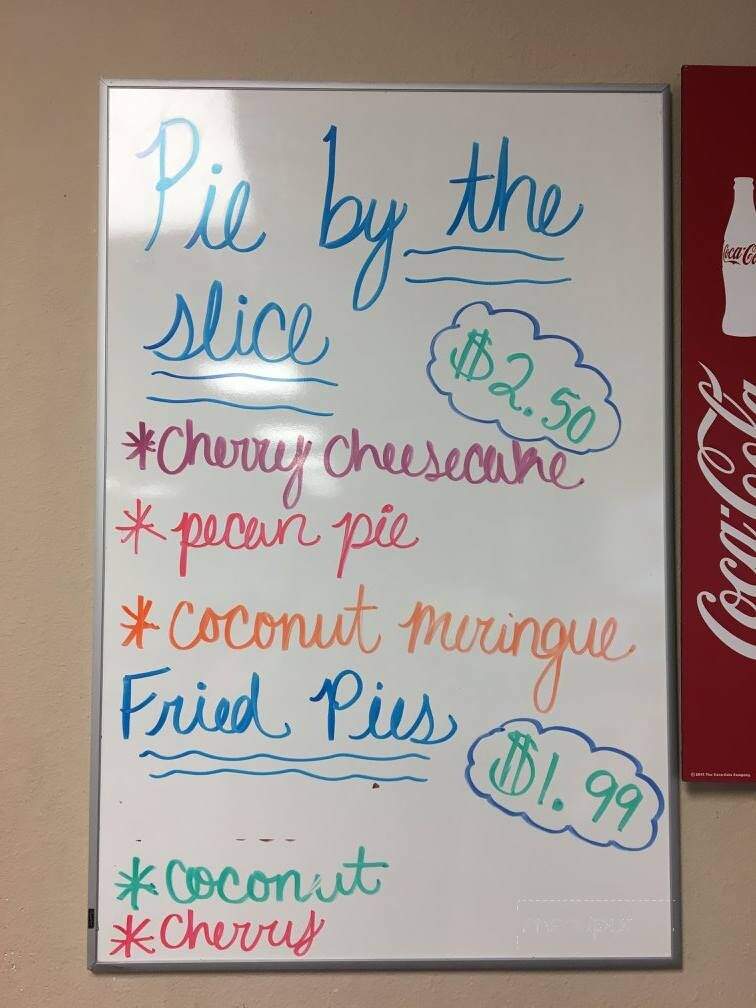 Pie by the
slice
$2.50
*cherry cheesecake
* pecan pie
* coconut meringue
Fried Pies
$1.99
*coconut
*cherry
Coca-Cola
Coca-Cola